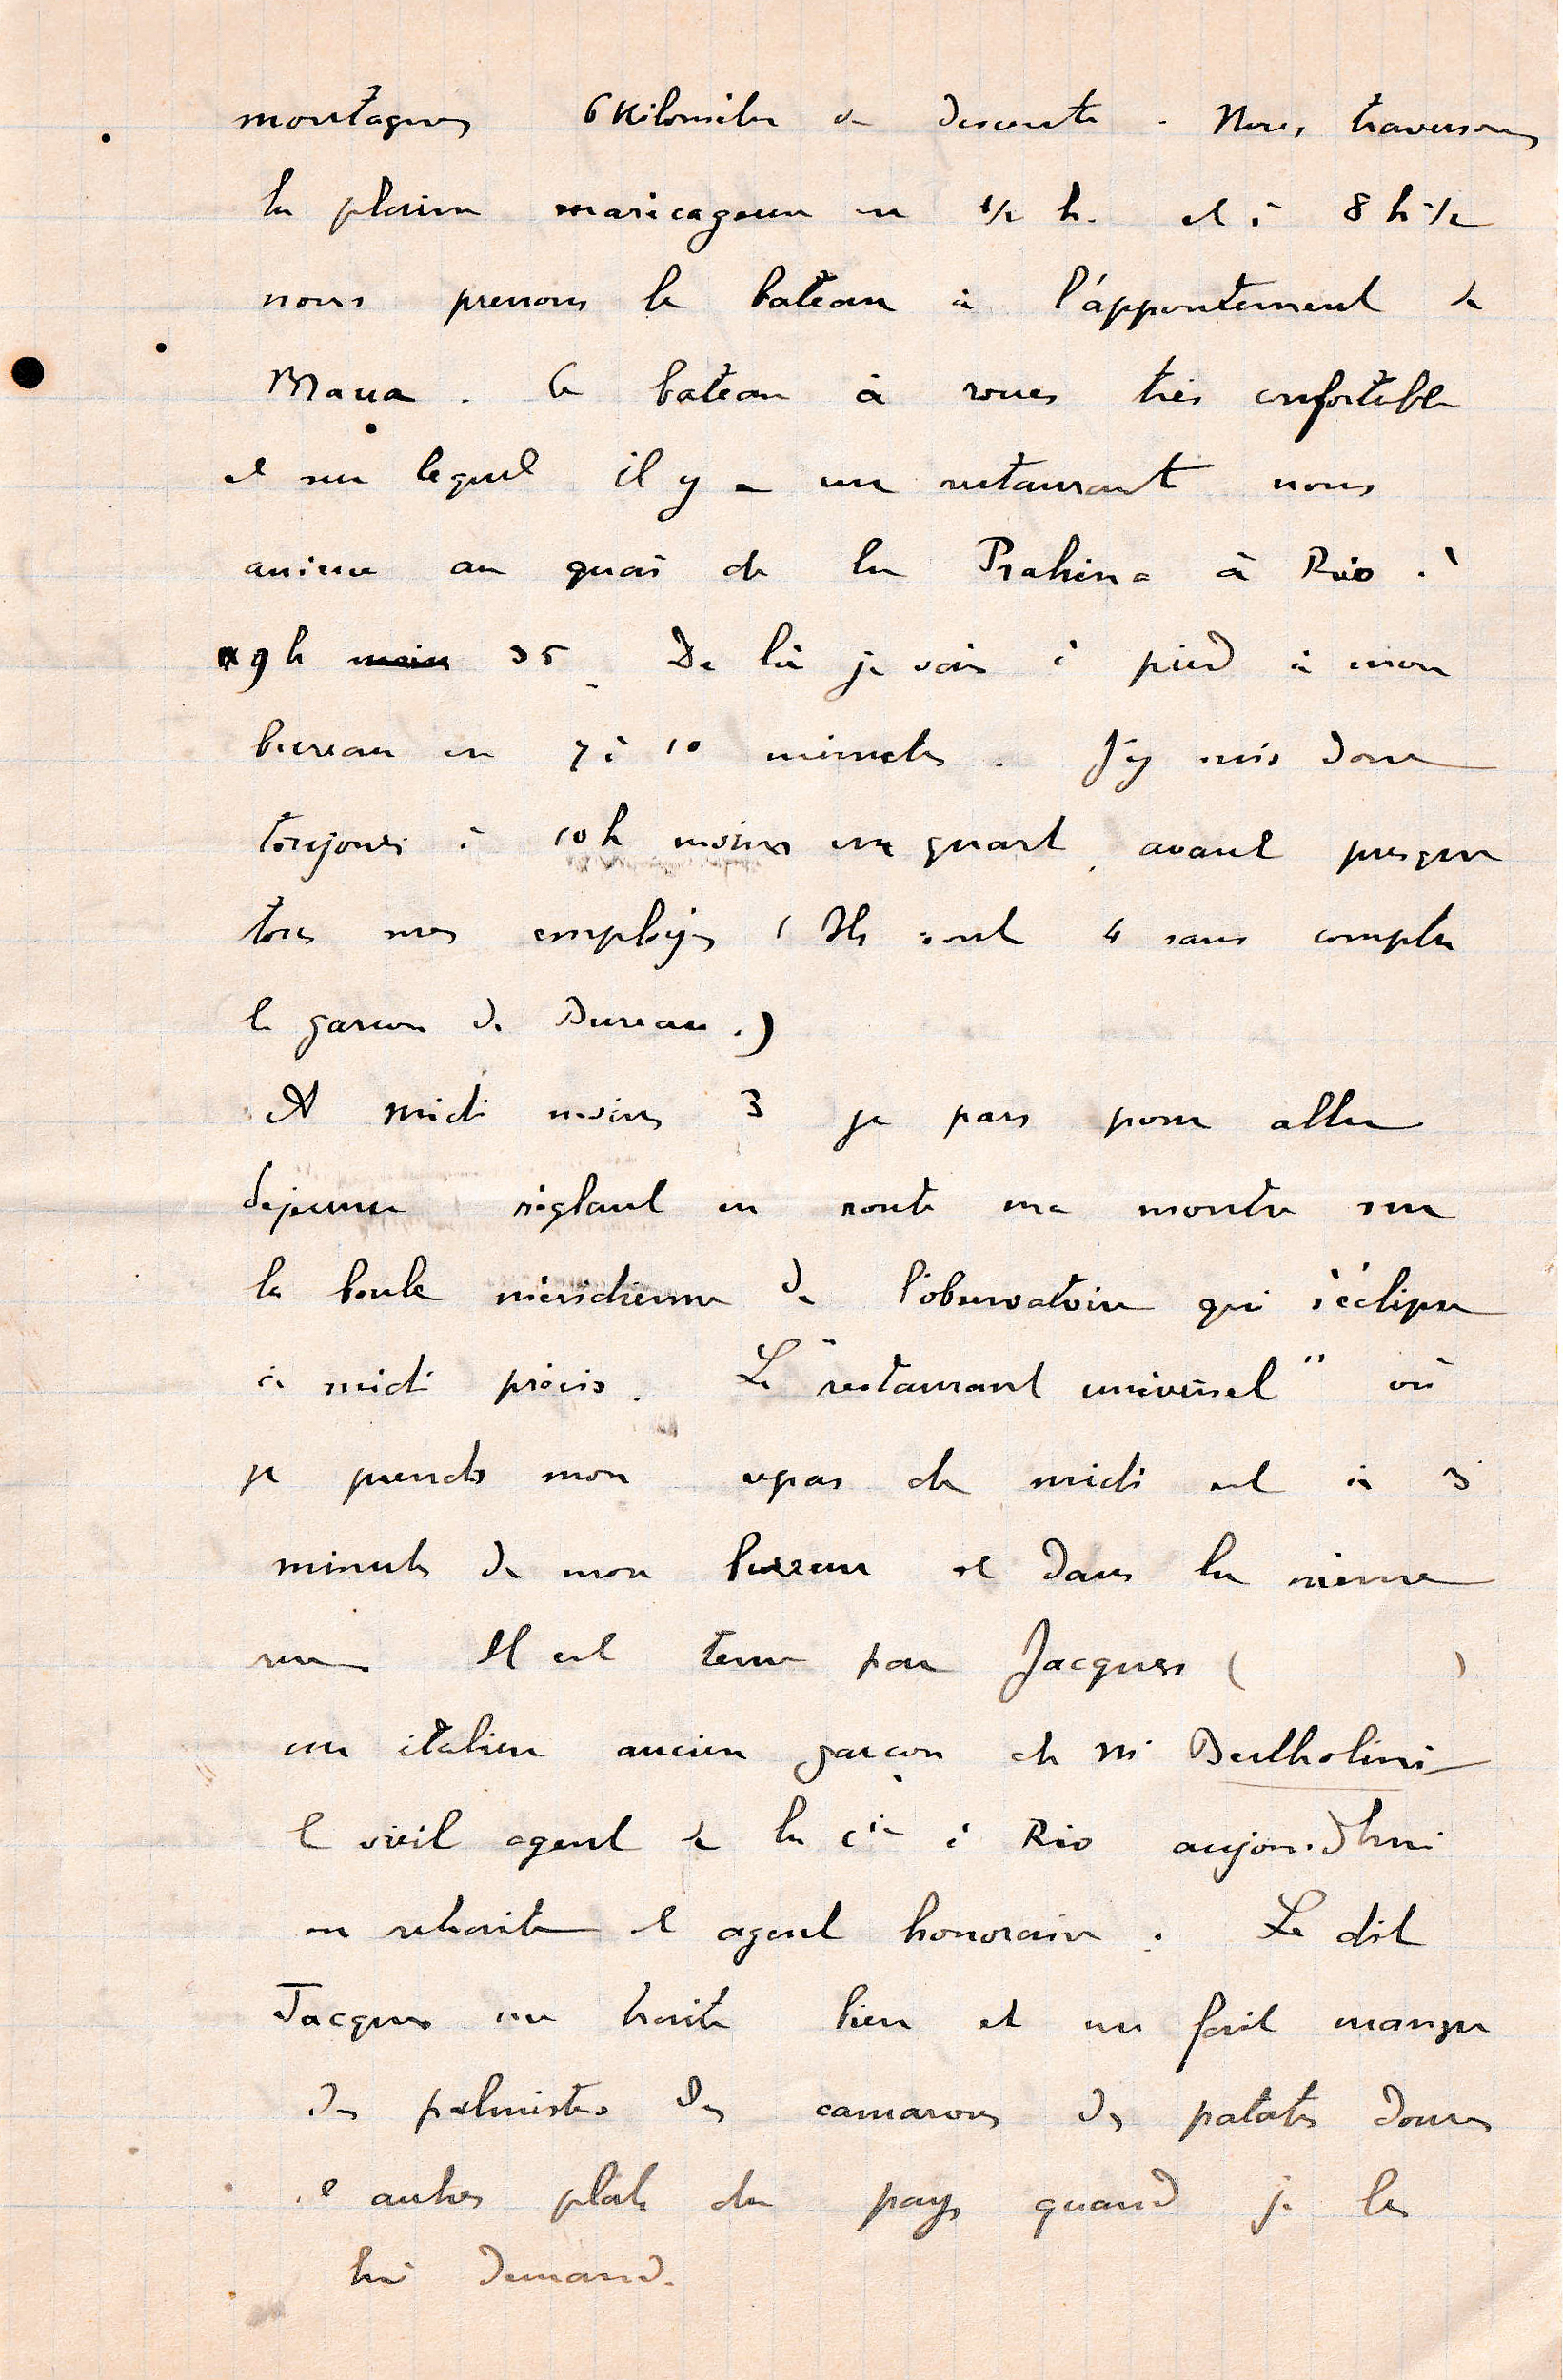 montagnes 6 Kilomètres de descente. Nous traversons
la plaine marécageuse en 1/2 h. et à 8 h 1/2
nous prenons le bateau à l'appontement de
Maua. Ce bateau à roues très confortable
et sur lequel il y a un restaurant nous
amène au quai de la Prahina à Rio à
9 h 35. De là je vais à pied à mon
bureau en 7 à 10 minutes. J'y suis donc
toujours à 10 h moins un quart, avant presque
tous mes employés (Ils sont 4 sans compter
le garçon de Bureau.)
A midi moins 3 je pars pour aller
dejeuner réglant en route ma montre sur
la boule méridienne de l'observatoire qui s'éclipse
à midi précis. Le "restaurant universel" où
je prends mon repas de midi est à 3
minutes de mon bureau et dans la même
rue Il est tenu par Jacques ( )
un italien ancien garçon de Mr Bertholini
le vieil agent de la Cie à Rio aujourd'hui
en retraite et agent honoraire. Le dit
Jacques me traite bien et me fait manger
des palmistes des camarons des patates douces
et autres plats du pays quand je les
lui demande.